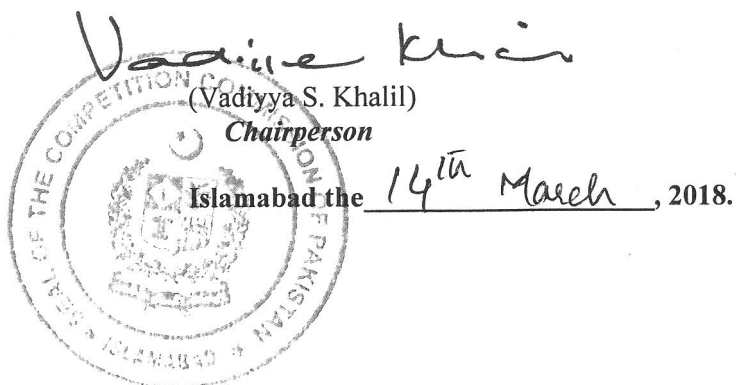 Vadiyya Khalil
(Vadiyya S. Khalil)
Chairperson
Islamabad the 14th March, 2018.
SEAL OF THE COMPETITION COMMISSION OF PAKISTAN
* ISLAMABAD *